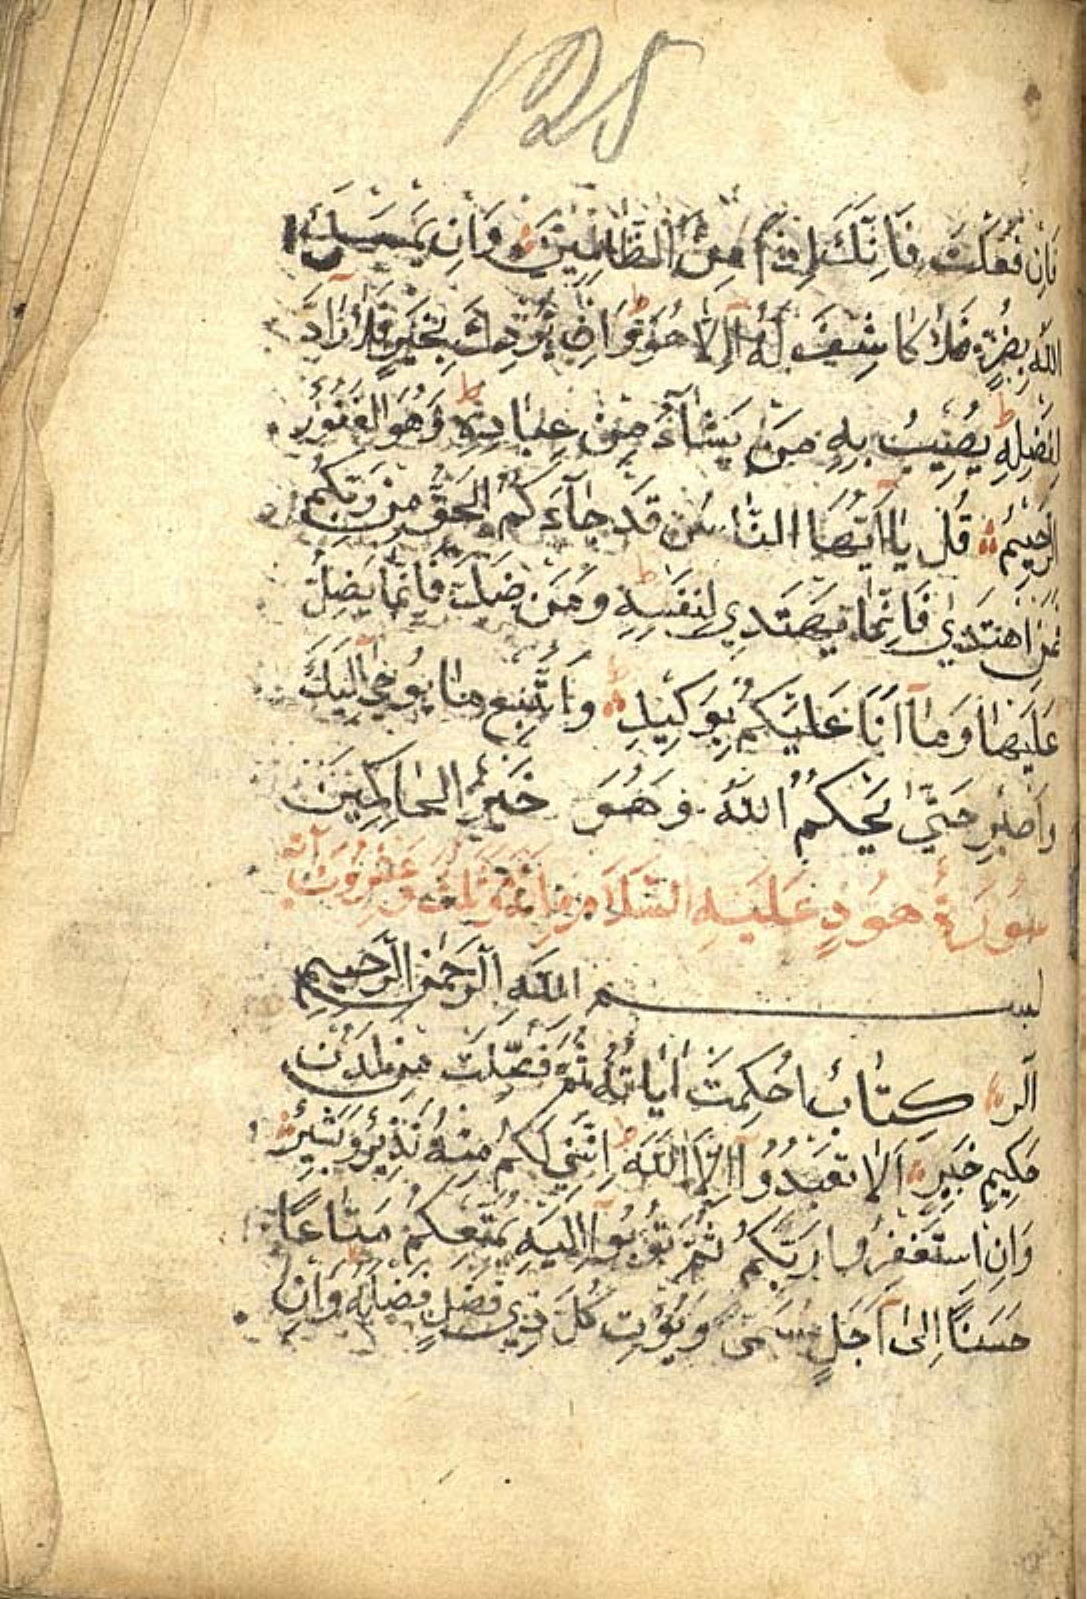 125
فَاِن فَعَلْتَ فَاِنَّكَ اِذًا مِنَ الظَّالِمِينَ وَاِن يَمْسَسْكَ
اللّٰهُ بِضُرٍّ فَلَا كَاشِفَ لَهُ اِلَّا هُوَ وَاِن يُرِدْكَ بِخَيْرٍ فَلَا رَادَّ
لِفَضْلِهِ يُصِيبُ بِهِ مَن يَشَآءُ مِنْ عِبَادِهِ وَهُوَ الْغَفُورُ
الرَّحِيمُ قُلْ يَا اَيُّهَا النَّاسُ قَدْ جَآءَكُمُ الْحَقُّ مِن رَبِّكُمْ
فَمَنِ اهْتَدٰي فَاِنَّمَا يَهْتَدِي لِنَفْسِهِ وَمَن ضَلَّ فَاِنَّمَا يَضِلُّ
عَلَيْهَا وَمَآ اَنَا عَلَيْكُمْ بِوَكِيلٍ وَاتَّبِعْ مَا يُوحٰي اِلَيْكَ
وَاصْبِرْ حَتّٰي يَحْكُمَ اللّٰهُ وَهُوَ خَيْرُ الْحَاكِمِينَ
سُورَةُ هُودٍ عَلَيْهِ السَّلَام مِائَة وَثَلٰث وَعِشْرُونَ اٰيَة
بسم اللّٰهِ الرَّحْمٰنِ الرَّحِيمِ
الٓر كِتَابٌ اُحْكِمَتْ اٰيَاتُهُ ثُمَّ فُصِّلَتْ مِن لَدُنْ
حَكِيمٍ خَبِيرٍ اَلَّا تَعْبُدُوا اِلَّا اللّٰهَ اِنَّنِي لَكُمْ مِنْهُ نَذِيرٌ وَبَشِيرٌ
وَاَنِ اسْتَغْفِرُوا رَبَّكُمْ ثُمَّ تُوبُوا اِلَيْهِ يُمَتِّعْكُمْ مَتَاعًا
حَسَنًا اِلٰى اَجَلٍ مُسَمًّى وَيُؤْتِ كُلَّ ذِي فَضْلٍ فَضْلَهُ وَاِن